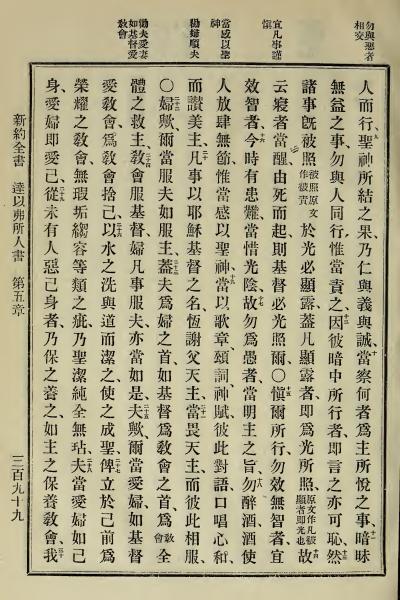 勿與惡者
相交
宜凡事謹
慎
當感以聖
神
勸婦順夫
勸夫愛妻
如基督愛
敎會
人而行、聖神所結之果、乃仁與義與誠、十當察何者爲主所悅之事、十一暗昧
無益之事、勿與人同行、惟當責之、十二因彼暗中所行者、卽言之亦可恥、十三然
諸事旣被照被照原文作被責於光、必顯露、蓋凡顯露者、卽爲光所照、原文作凡被顯者卽光也十四故
云、寢者當醒、由死而起、則基督必光照爾〇十五愼爾所行、勿效無智者、宜
效智者、十六今時有患難、當惜光陰、十七故勿爲愚者、當明主之旨、十八勿醉酒、酒使
人放肆無節、惟當感以聖神、十九當以歌章、頌詞、神賦、彼此對語、口唱心和、
而讚美主、二十凡事以耶穌基督之名、恆謝父天主、二十一當畏天主、而彼此相服、
〇二十二婦歟、爾當服夫如服主、二十三蓋夫爲婦之首、如基督爲敎會之首、爲敎會全
體之救主、二十四敎會服基督、婦凡事服夫、亦當如是、二十五夫歟、爾當愛婦、如基督
愛敎會、爲敎會捨己、二十六以水之洗與道而潔之、使之成聖、二十七俾立於己前、爲
榮耀之敎會、無瑕垢縐容等類之疵、乃聖潔純全無玷、二十八夫當愛婦如己
身、愛婦卽愛己、二十九從未有人惡己身者、乃保之養之、如主之保養敎會、三十我
新約全書 達以弗所人書 第五章 三百九十九